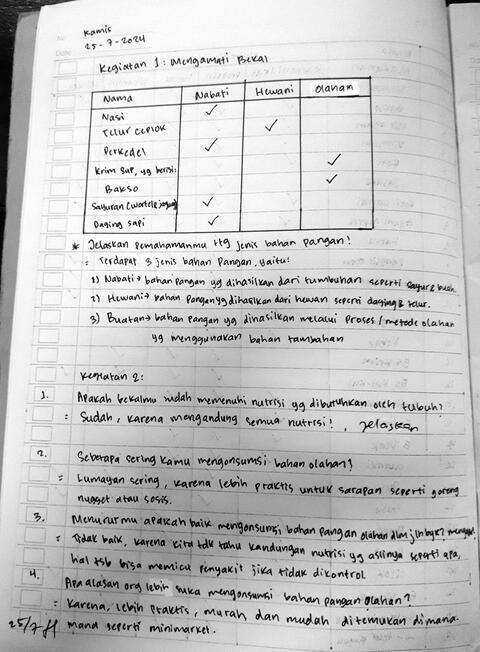 No
Kamis
Date
25-7-2024
Kegiatan 1: Mengamati Bekal
Nama Nabati Hewani Olahan
Nasi ✓
Telur ceplok ✓
Perkedel ✓
Krim sup, yg berisi: ✓
Bakso ✓
Sayuran (wortel & jagung) ✓
Daging sapi ✓
* Jelaskan pemahamanmu ttg jenis bahan pangan?
= Terdapat 3 jenis bahan pangan, yaitu:
1) Nabati → bahan pangan yg dihasilkan dari tumbuhan seperti sayur & buah.
2) Hewani → bahan pangan yg dihasilkan dari hewan seperti daging & telur.
3) Buatan → bahan pangan yg dihasilkan melalui proses/metode olahan
yg menggunakan bahan tambahan
Kegiatan 2:
1. Apakah bekalmu sudah memenuhi nutrisi yg dibutuhkan oleh tubuh?
= Sudah, karena mengandung semua nutrisi!, jelaskan
2. Seberapa sering kamu mengonsumsi bahan olahan?
= Lumayan sering, karena lebih praktis untuk sarapan seperti goreng
nugget atau sosis.
3. Menurutmu apakah baik mengonsumsi bahan pangan olahan dlm jlh byk?
= Tidak baik, karena kita tdk tahu kandungan nutrisi yg aslinya seperti apa,
hal tsb bisa memicu penyakit jika tidak dikontrol.
4. Apa alasan org lebih suka mengonsumsi bahan pangan olahan?
= Karena, lebih praktis, murah, dan mudah ditemukan dimana-
25/7 mana seperti minimarket.